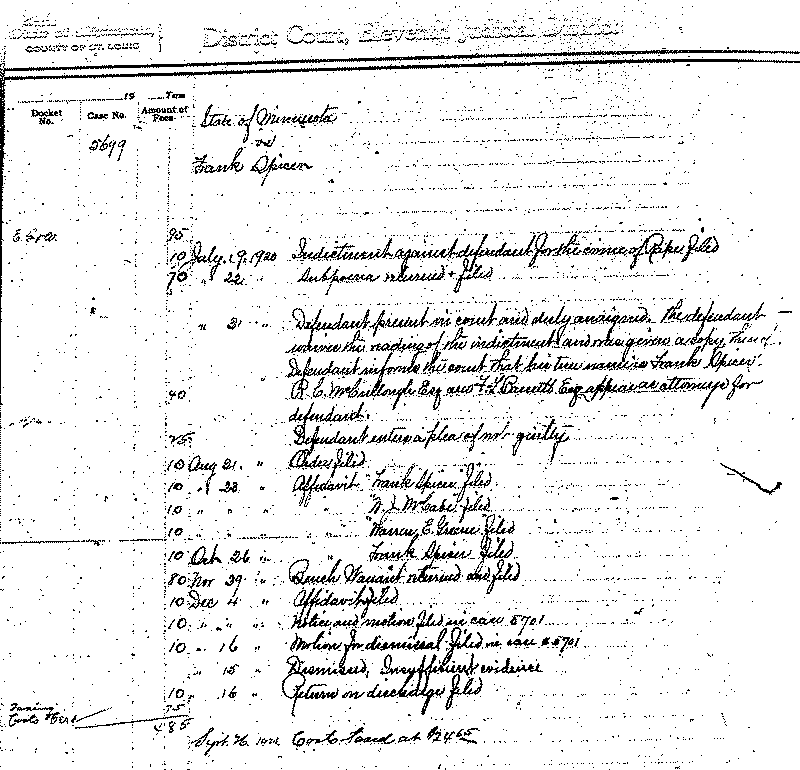 State of Minnesota,
COUNTY OF ST. LOUIS
District Court, Eleventh Judicial District
19 Term
Docket No. Case No. Amount of Fees
State of Minnesota
vs
5699
Frank Spicer
95
10 July 19, 1920 Indictment against defendant for the crime of Rape filed
70 " 22 " Subpoena returned & filed
" 21 " Defendant present in court and duly arraigned. The defendant
waives the reading of the indictment and was given a copy thereof.
Defendant informs the court that his true name is Frank Spicer.
40 R. C. McCullough Esq and F. L. Barnett Esq appear as attorneys for
defendant.
25 Defendant enters a plea of not guilty
10 Aug 21 " Order filed
10 " 23 " Affidavit Frank Spicer filed
10 " " " " W. J. McCabe filed
10 " " " " Warren E. Greene filed
10 Oct 26 " " Frank Spicer filed
80 Nov 29 " Bench Warrant returned and filed
10 Dec 4 " Affidavit filed
10 " " " Notice and motion filed in case 5701
10 " 16 " Motion for dismissal filed in case 5701
" 15 " Dismissed, Insufficient evidence
10 " 16 " Return on discharge filed
75
Costs
485
Sept. Costs taxed at $24.65